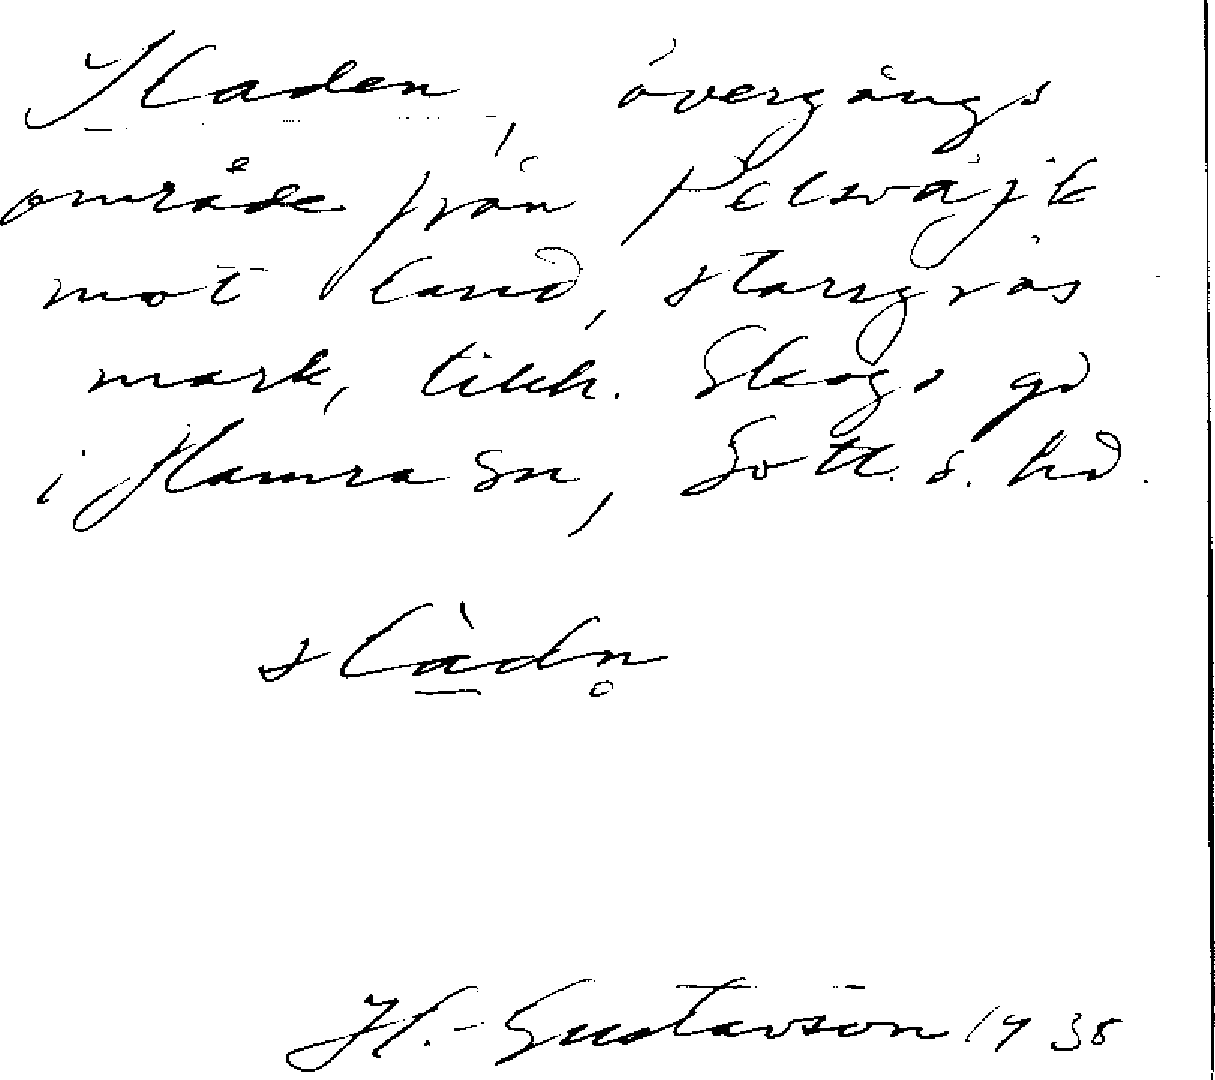 Sladen, övergångs
område från Pelsvájk
mot land, starrgräs
mark, tillh. Skogs gd
i Hamra sn, Gotl. s. hd.
slàdn̥
H. Gustavson 1938